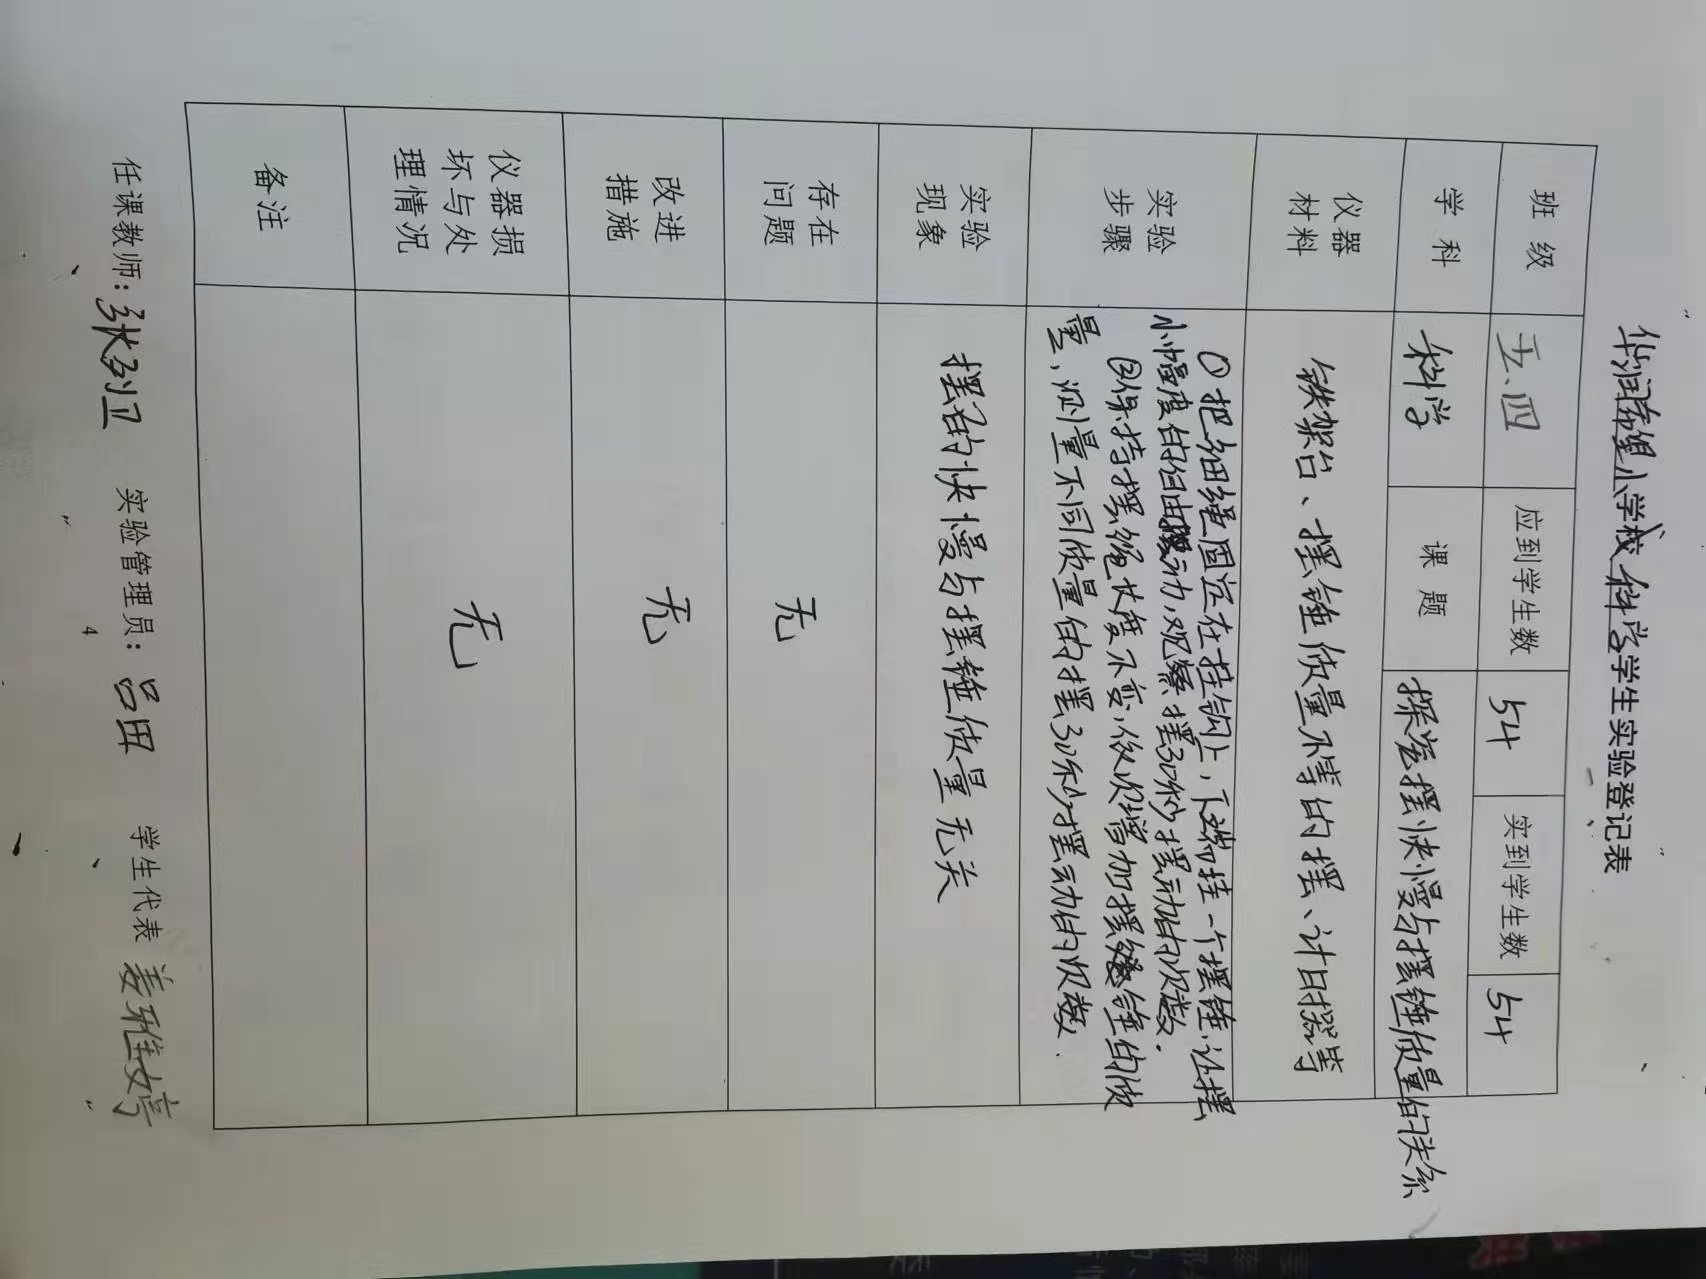 小学校科学学生实验登记表
班 级 五、四 应到学生数 54 实到学生数 54
学 科 科学 课 题 探究摆快慢与摆锤质量的关系
仪器
材料
铁架台、摆锤质量不等的摆、计时器等
实验
步骤
①把细绳固定在挂钩上,下端挂一个摆锤,让摆
小幅度的自由摆动,观察摆30秒摆动的次数.
②保持摆绳长度不变,依次增加摆锤的质
量,测量不同质量的摆30秒摆动的次数.
实验
现象
摆的快慢与摆锤质量无关
存在
问题
无
改进
措施
无
仪器损
坏与处
理情况
无
备注
任课教师: 张列卫 实验管理员: 吕田 学生代表 姜雅婷
4